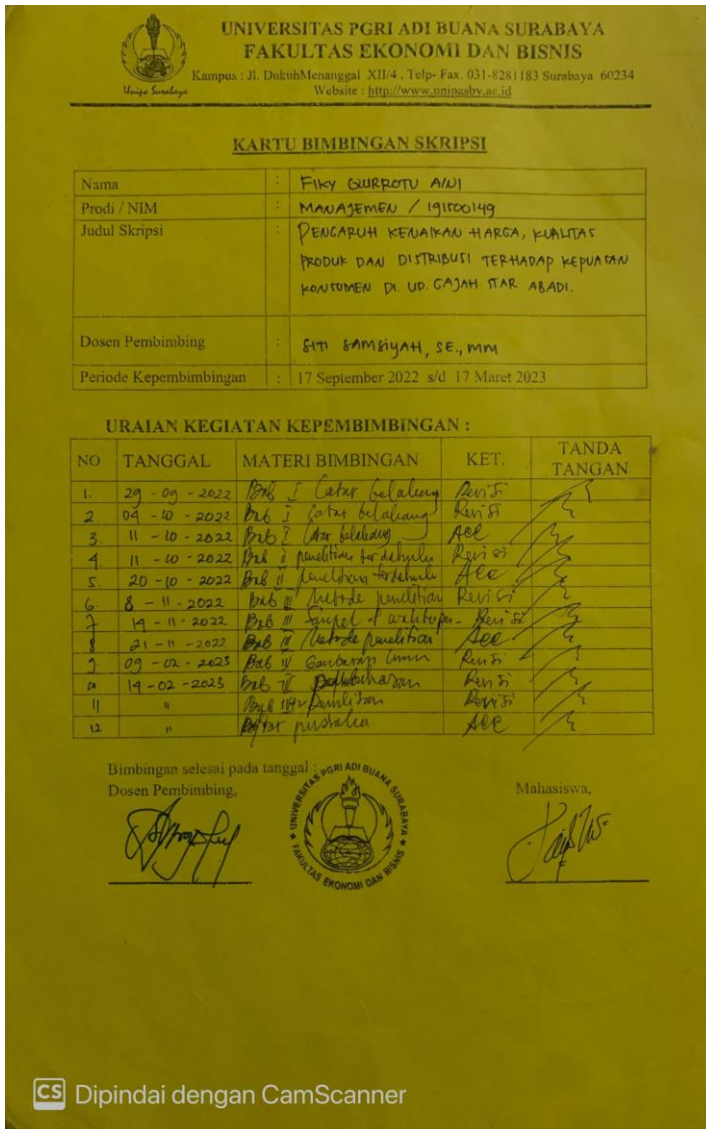 UNIVERSITAS PGRI ADI BUANA SURABAYA
FAKULTAS EKONOMI DAN BISNIS
Kampus : Jl. DukuhMenanggal XII/4 , Telp- Fax. 031-8281183 Surabaya 60234
Website : http://www.unipasby.ac.id
Unipa Surabaya
KARTU BIMBINGAN SKRIPSI
Nama : FIKY QURROTU AINI
Prodi / NIM : MANAJEMEN / 191500149
Judul Skripsi : PENGARUH KENAIKAN HARGA, KUALITAS
PRODUK DAN DISTRIBUSI TERHADAP KEPUASAN
KONSUMEN DI UD. GAJAH STAR ABADI.
Dosen Pembimbing : SITI SAMSIYAH, SE., MM
Periode Kepembimbingan : 17 September 2022 s/d 17 Maret 2023
URAIAN KEGIATAN KEPEMBIMBINGAN :
NO TANGGAL MATERI BIMBINGAN KET. TANDA TANGAN
1. 29 - 09 - 2022 Bab I Latar belakang Revisi
2. 04 - 10 - 2022 Bab I Latar belakang Revisi
3. 11 - 10 - 2022 Bab I Latar belakang Acc
4. 11 - 10 - 2022 Bab II penelitian terdahulu Revisi
5. 20 - 10 - 2022 Bab II penelitian terdahulu Acc
6. 8 - 11 - 2022 Bab III Metode penelitian Revisi
7 14 - 11 - 2022 Bab III Sampel Revisi
8 21 - 11 - 2022 Bab III Metode penelitian Acc
9. 09 - 02 - 2023 Bab IV Gambaran Umum Revisi
10 14 - 02 - 2023 Bab Pembahasan Revisi
11 " Revisi
12 " Daftar pustaka Acc
Bimbingan selesai pada tanggal :
Dosen Pembimbing,
Mahasiswa,
UNIVERSITAS PGRI ADI BUANA SURABAYA
FAKULTAS EKONOMI DAN BISNIS
CS Dipindai dengan CamScanner